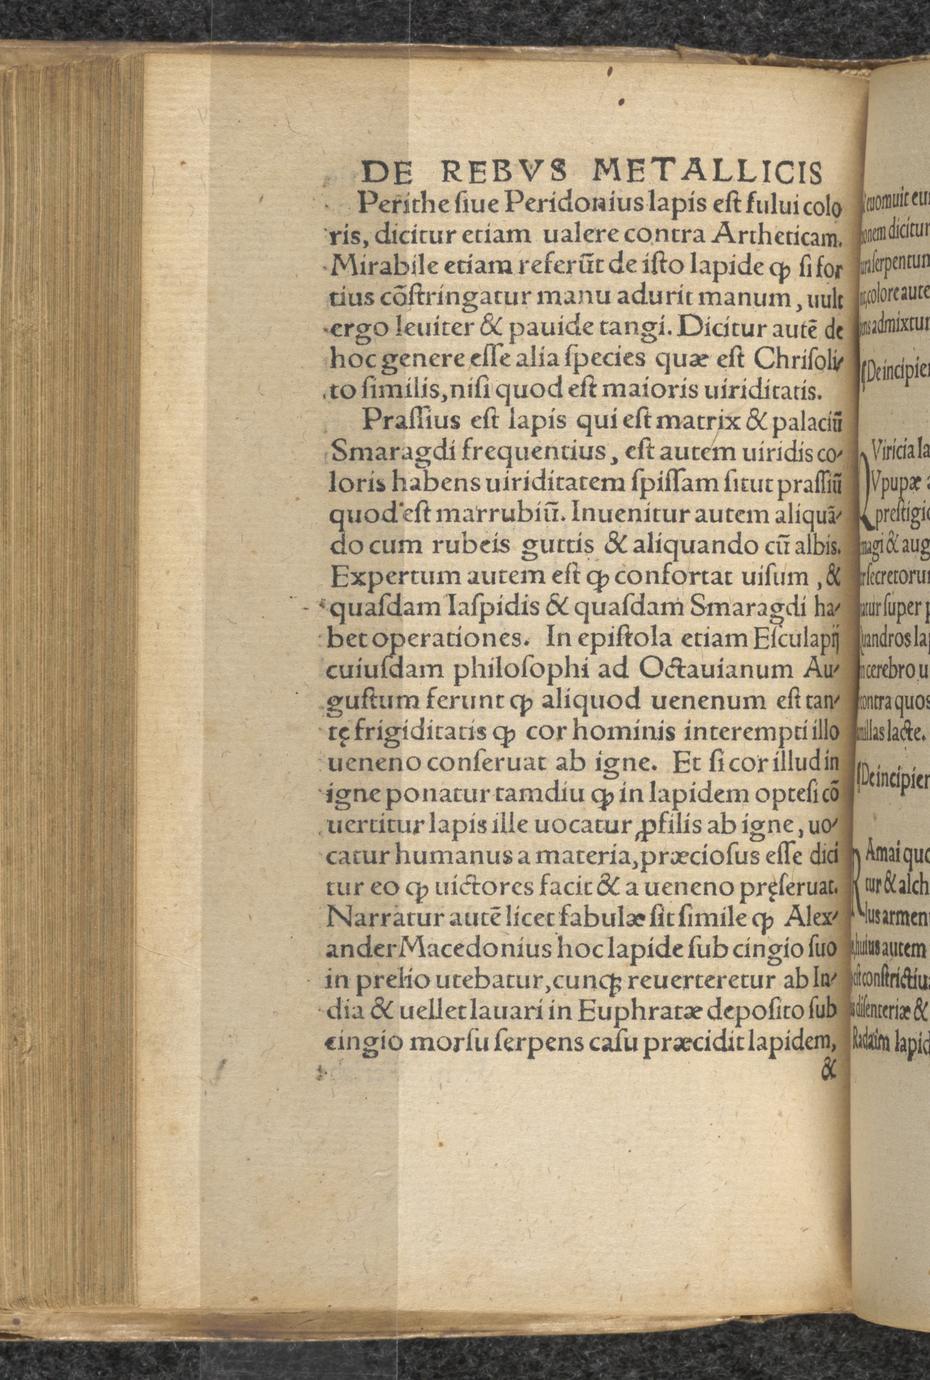 DE REBVS METALLICIS
Perithe ſiue Peridonius lapis eſt fului colo
ris, dicitur etiam ualere contra Artheticam.
Mirabile etiam referūt de iſto lapide ꝙ ſi for
tius cōſtringatur manu adurit manum, uult
ergo leuiter & pauide tangi. Dicitur autē de
hoc genere eſſe alia ſpecies quæ eſt Chriſoli-
to ſimilis, niſi quod eſt maioris uiriditatis.
Praſſius eſt lapis qui eſt matrix & palaciū
Smaragdi frequentius, eſt autem uiridis co-
loris habens uiriditatem ſpiſſam ſitut praſſiū
quod eſt marrubiū. Inuenitur autem aliquā-
do cum rubeis guttis & aliquando cū albis.
Expertum autem eſt ꝙ confortat uiſum, &
quaſdam Iaſpidis & quaſdam Smaragdi ha-
bet operationes. In epiſtola etiam Eſculapij
cuiuſdam philoſophi ad Octauianum Au-
guſtum ferunt ꝙ aliquod uenenum eſt tan-
tę frigiditatis ꝙ cor hominis interempti illo
ueneno conſeruat ab igne. Et ſi cor illud in
igne ponatur tamdiu ꝙ in lapidem opteſi cō
uertitur lapis ille uocatur ꝓfilis ab igne, uo-
catur humanus a materia, præcioſus eſſe dici
tur eo ꝙ uictores facit & a ueneno pręſeruat.
Narratur autē licet fabulæ ſit ſimile ꝙ Alex-
ander Macedonius hoc lapide ſub cingio ſuo
in prelio utebatur, cunꝗ reuerteretur ab In-
dia & uellet lauari in Euphratæ depoſito ſub
cingio morſu ſerpens caſu præcidit lapidem,
&
onem dicitur
ſerpentum
colore aute
admixtur
De incipien
Viricia la
Vpupæ
preſtigio
magi & aug
ſecretorum
ſuper
quandros la
cerebro
contra quos
lacte.
De incipien
Amai quo
tur & alch
lus armen
huius autem
conſtrictiu
diſenteriæ &
Radaim lapid